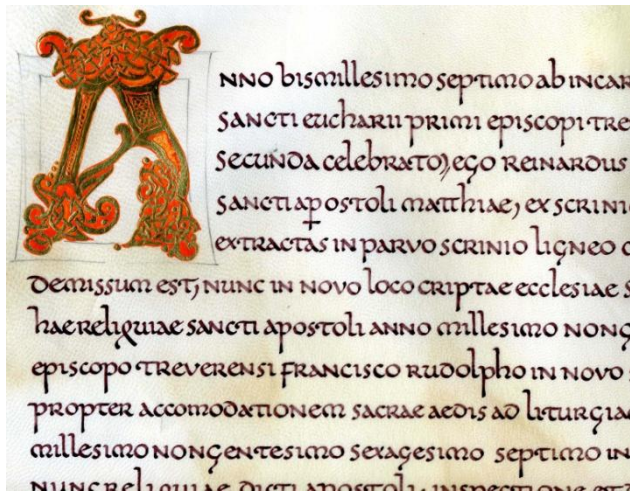 ANNO bismillesimo septimo ab incar
sancti eucharii primi episcopi tre
secunda celebrato) ego reinardus
sancti ap ostoli matthiae, ex scrini
extractas in parvo scrinio ligneo
demissum est, nunc in novo loco criptae ecclesiae s
hae reliquiae sancti apostoli anno millesimo nong
episcopo treverensi francisco rudolpho in novo
propter accomodationem sacrae aedis ad liturgia
millesimo nongentesimo sexagesimo septimo in
nunc reliquiae dicti apostoli inspectione et